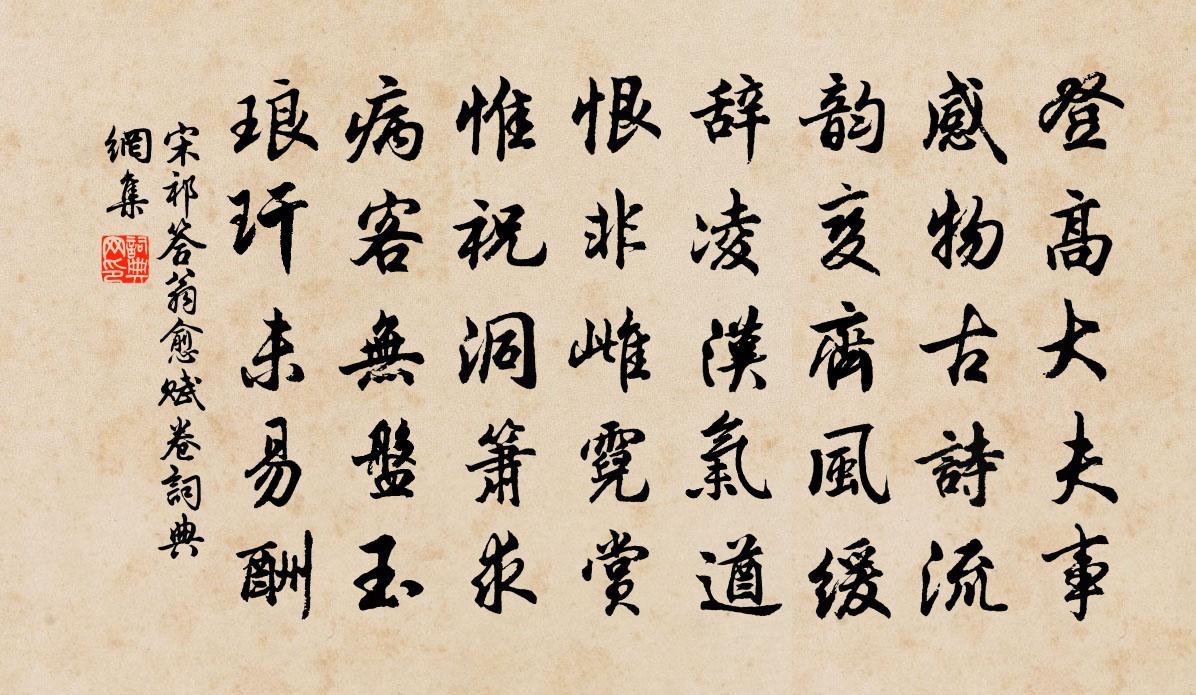 登高大夫事
感物古詩流
韵变齊風緩
辞凌漢氣遒
恨非雌霓賞
惟祝洞簫求
病客無盤玉
琅玕未易酬
宋祁答翁愈賦卷詞典
網集
詞典
网印